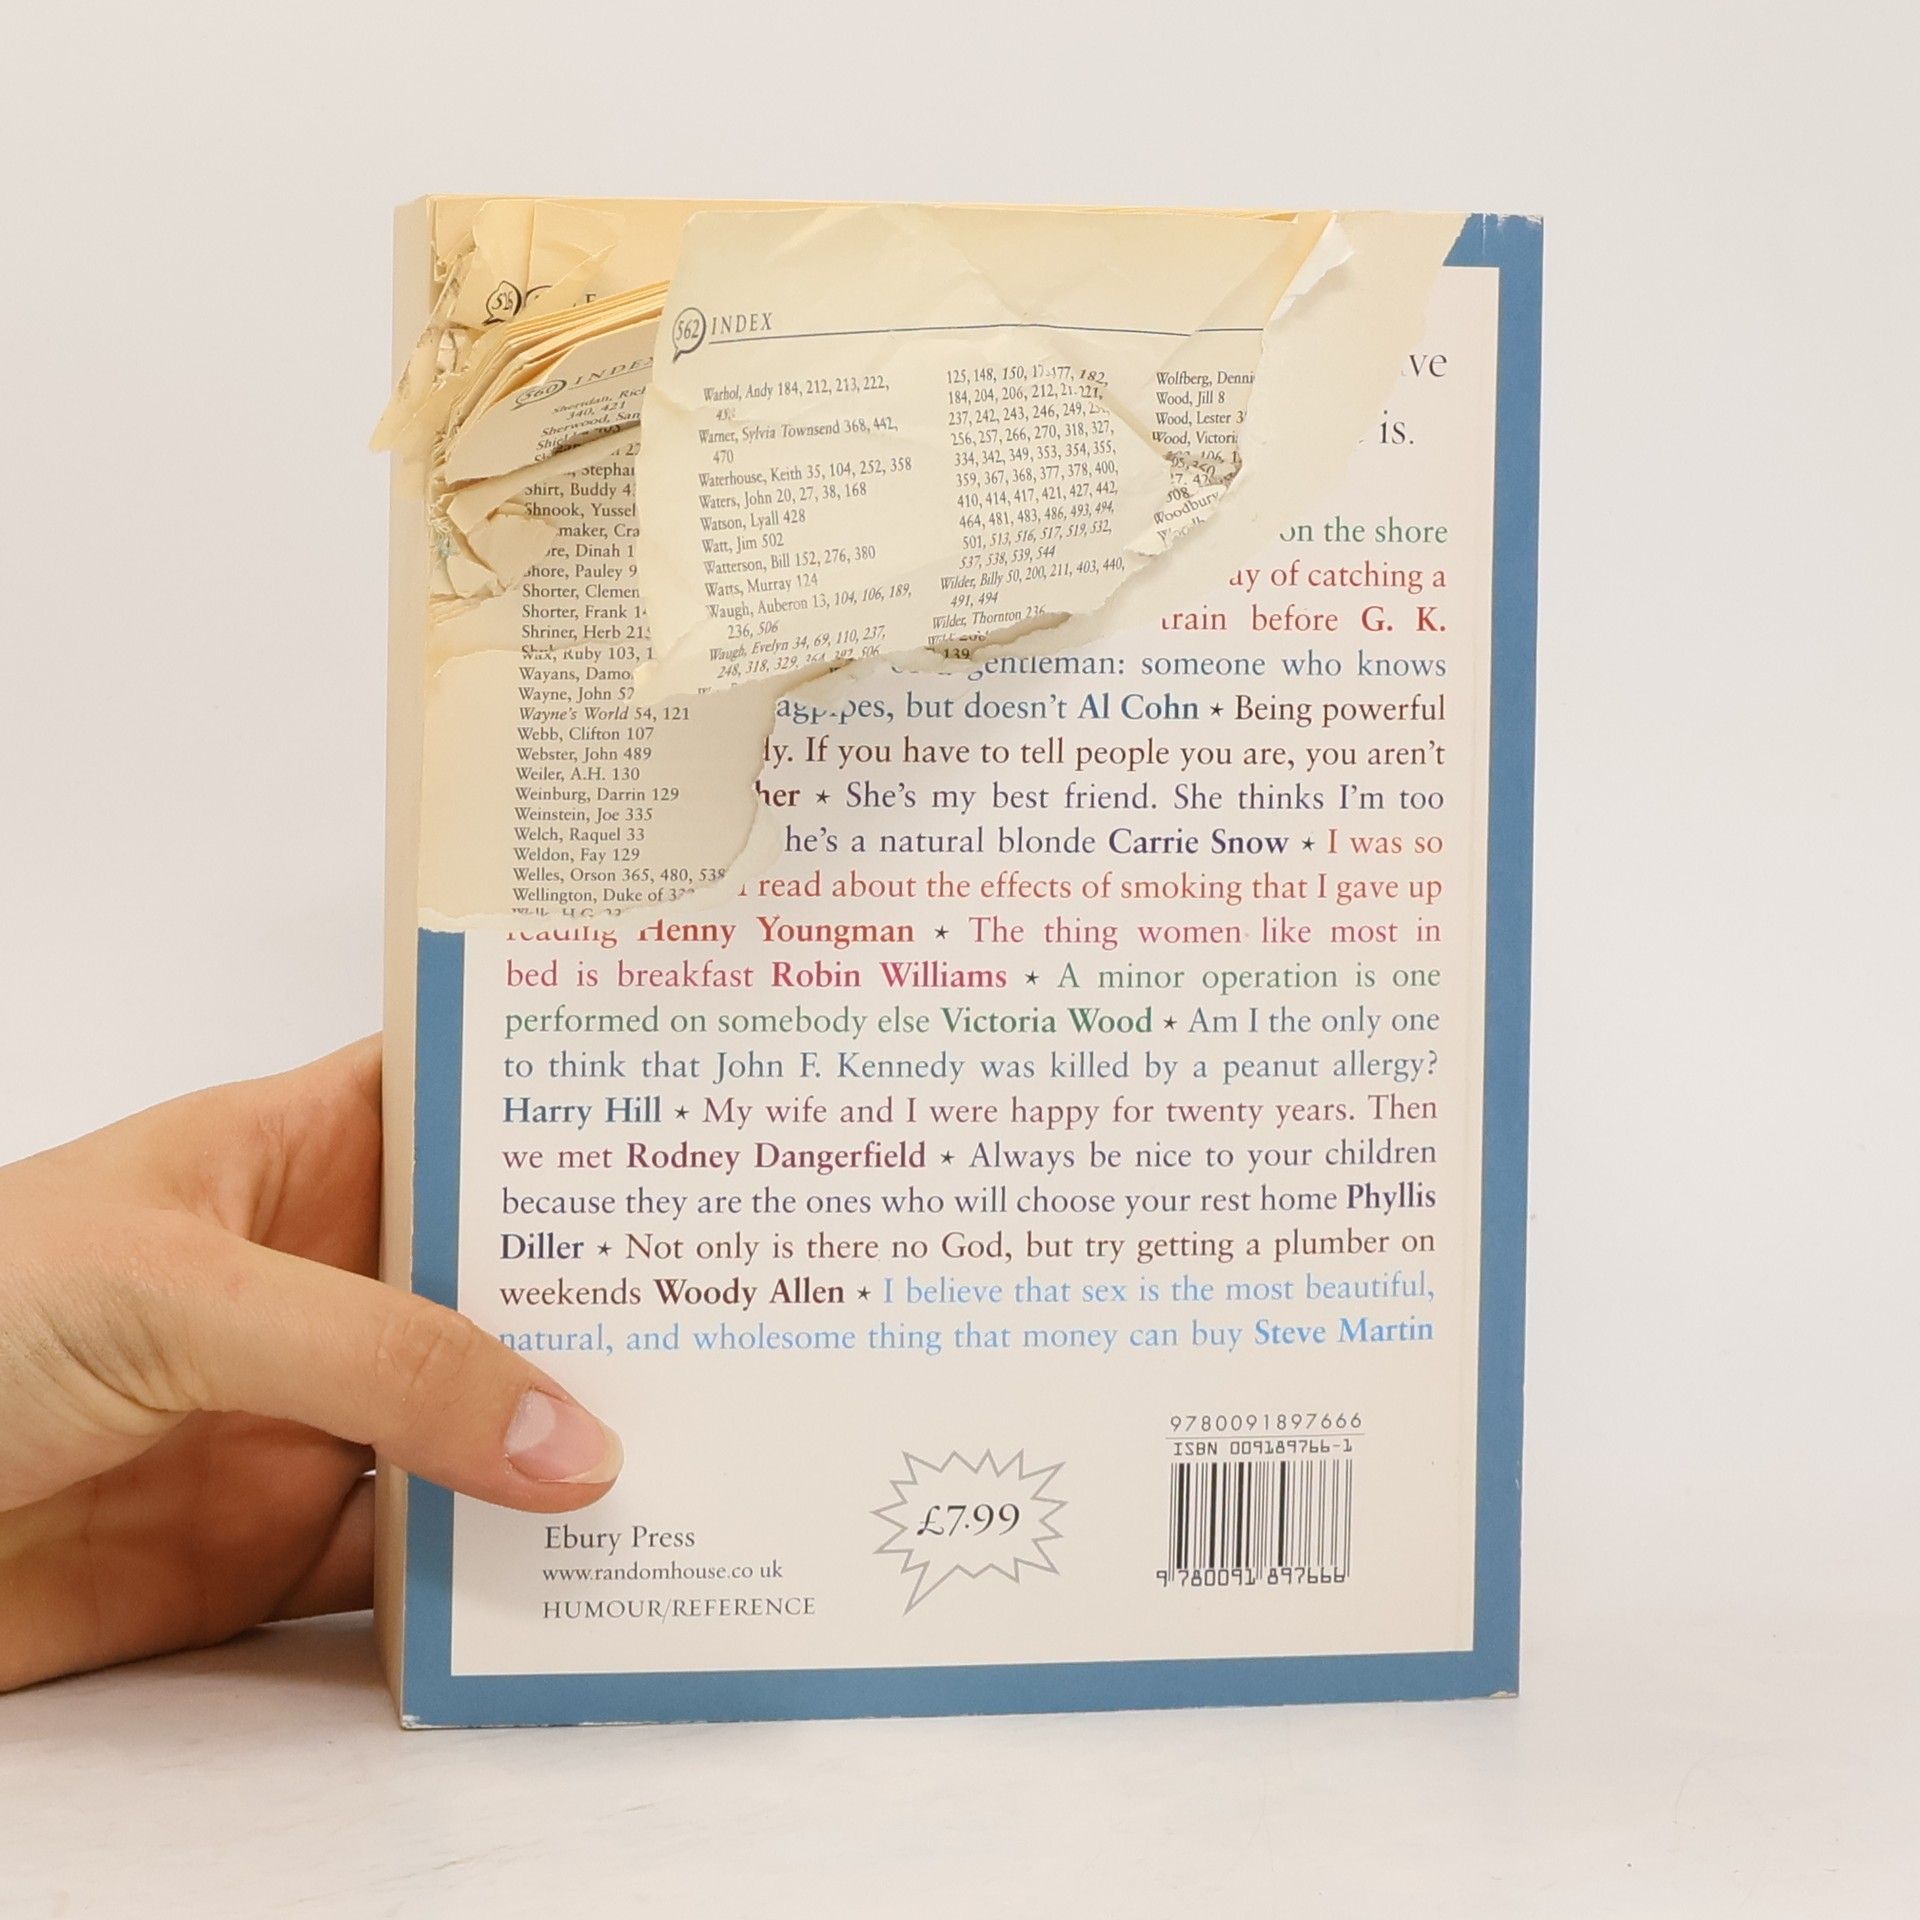 562 INDEX
560 INDEX
Warhol, Andy 184, 212, 213, 222,
Warner, Sylvia Townsend 368, 442,
470
Waterhouse, Keith 35, 104, 252, 358
Waters, John 20, 27, 38, 168
Watson, Lyall 428
Watt, Jim 502
Watterson, Bill 152, 276, 380
Watts, Murray 124
Waugh, Auberon 13, 104, 106, 189,
236, 506
Waugh, Evelyn 34, 69, 110, 237,
248, 318, 329,
125, 148, 150,
184, 204, 206, 212,
237, 242, 243, 246, 249,
256, 257, 266, 270, 318, 327,
334, 342, 349, 353, 354, 355,
359, 367, 368, 377, 378, 400,
410, 414, 417, 421, 427, 442,
464, 481, 483, 486, 493, 494,
501, 513, 516, 517, 519, 532,
537, 538, 539, 544
Wilder, Billy 50, 200, 211, 403, 440,
491, 494
Wilder, Thornton 236
139
Wolfberg,
Wood, Jill 8
Wood, Lester
Wood,
Woodbury
340, 421
Sherwood,
Shirt, Buddy
Shnook,
Dinah
Shore, Pauley
Shorter,
Shorter, Frank
Shriner, Herb
Wax, Ruby 103,
Wayans,
Wayne, John
Wayne's World 54, 121
Webb, Clifton 107
Webster, John 489
Weiler, A.H. 130
Weinburg, Darrin 129
Weinstein, Joe 335
Welch, Raquel 33
Weldon, Fay 129
Welles, Orson 365, 480, 538
Wellington, Duke of
is.
on the shore
of catching a
train before G. K.
gentleman: someone who knows
but doesn't Al Cohn ★ Being powerful
If you have to tell people you are, you aren't
★ She's my best friend. She thinks I'm too
a natural blonde Carrie Snow ★ I was so
read about the effects of smoking that I gave up
reading Henny Youngman ★ The thing women like most in
bed is breakfast Robin Williams ★ A minor operation is one
performed on somebody else Victoria Wood ★ Am I the only one
to think that John F. Kennedy was killed by a peanut allergy?
Harry Hill ★ My wife and I were happy for twenty years. Then
we met Rodney Dangerfield ★ Always be nice to your children
because they are the ones who will choose your rest home Phyllis
Diller ★ Not only is there no God, but try getting a plumber on
weekends Woody Allen ★ I believe that sex is the most beautiful,
natural, and wholesome thing that money can buy Steve Martin
9780091897666
ISBN 009189766-1
9 780091 897666
£7.99
Ebury Press
www.randomhouse.co.uk
HUMOUR/REFERENCE